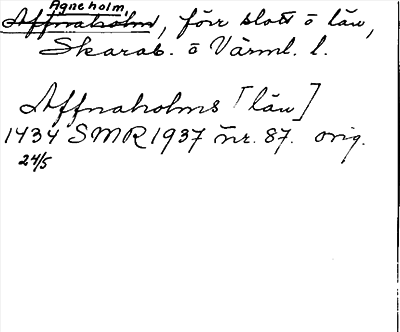 Agneholm,
Affnaholm, förr slott o län,
Skarab. o Värml. l.
Affnaholms [län]
1434 SMR 1937 nr. 87. orig.
24/5